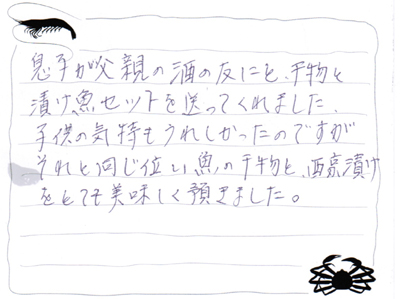 息子が父親の酒の友にと、干物と
漬け魚セットを送ってくれました、
子供の気持もうれしかったのですが
それと同じ位い魚の干物と、西京漬け
をとても美味しく預きました。